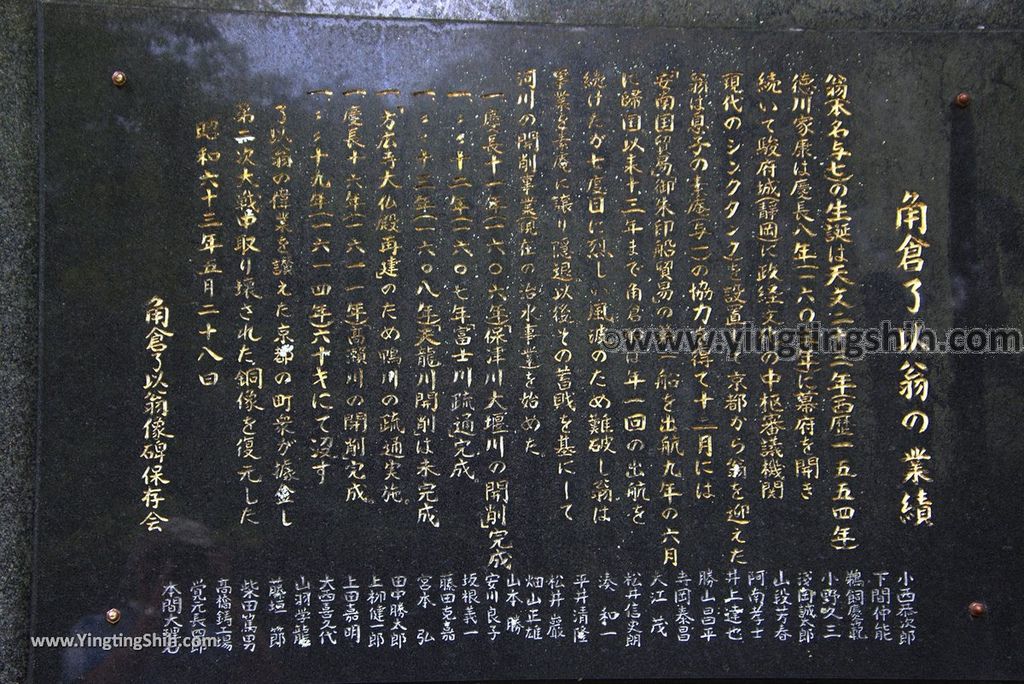 角倉了以翁の業績
翁(本名与七)の生誕は天文二十三年(西歴一五五四年)
徳川家康は慶長八年(一六〇三年)に幕府を開き
続いて駿府城(靜岡)に政経文化の中枢審議機関
現代のシンクタンクを設置し京都から翁を迎えた
翁は息子の素庵(与一)の協力を得て十二月には
「安南国貿易」御朱印船貿易の第一船を出航九年の六月
に帰国以来十三年まで角倉船は年一回の出航を
続けたが七度目に烈しい風波のため難破し翁は
事業を素庵に譲り隠退以後その蓄財を基にして
河川の開削事業現在の治水事業を始めた。
一、慶長十一年(一六〇六年)保津川大堰川の開削完成
一、〃十二年(一六〇七年)富士川疏通完成
一、〃十三年(一六〇八年)天龍川開削は未完成
一、方広寺大仏殿再建のため鴨川の疏通実施。
一、慶長十六年(一六一一年)高瀬川の開削完成。
一、〃十九年(一六一四年)六十才にて没す
了以翁の偉業を讃えた京都の町衆が據金し
第二次大戦中取り壊された銅像を復元した
昭和六十三年五月二十八日
角倉了以翁像碑保存会
小西恭次郎
下間仲能
鵜飼慶範
小野吟三
淺岡誠太郎
山段芳春
阿南孝士
井上達也
勝山昌平
寺岡泰昌
大江茂
松井信史朗
湊和一
平井清隆
松井巌
畑山正雄
山本勝
安川良子
坂根義一
藤田克嘉
宮本弘
田中勝太郎
上柳健一郎
上田嘉明
大西喜久代
山羽学龍
藤垣節
柴田富男
高橋鋳工場
覚元長四郎
本間大典
www.yingtingshih.com
www.YingTingShih.com